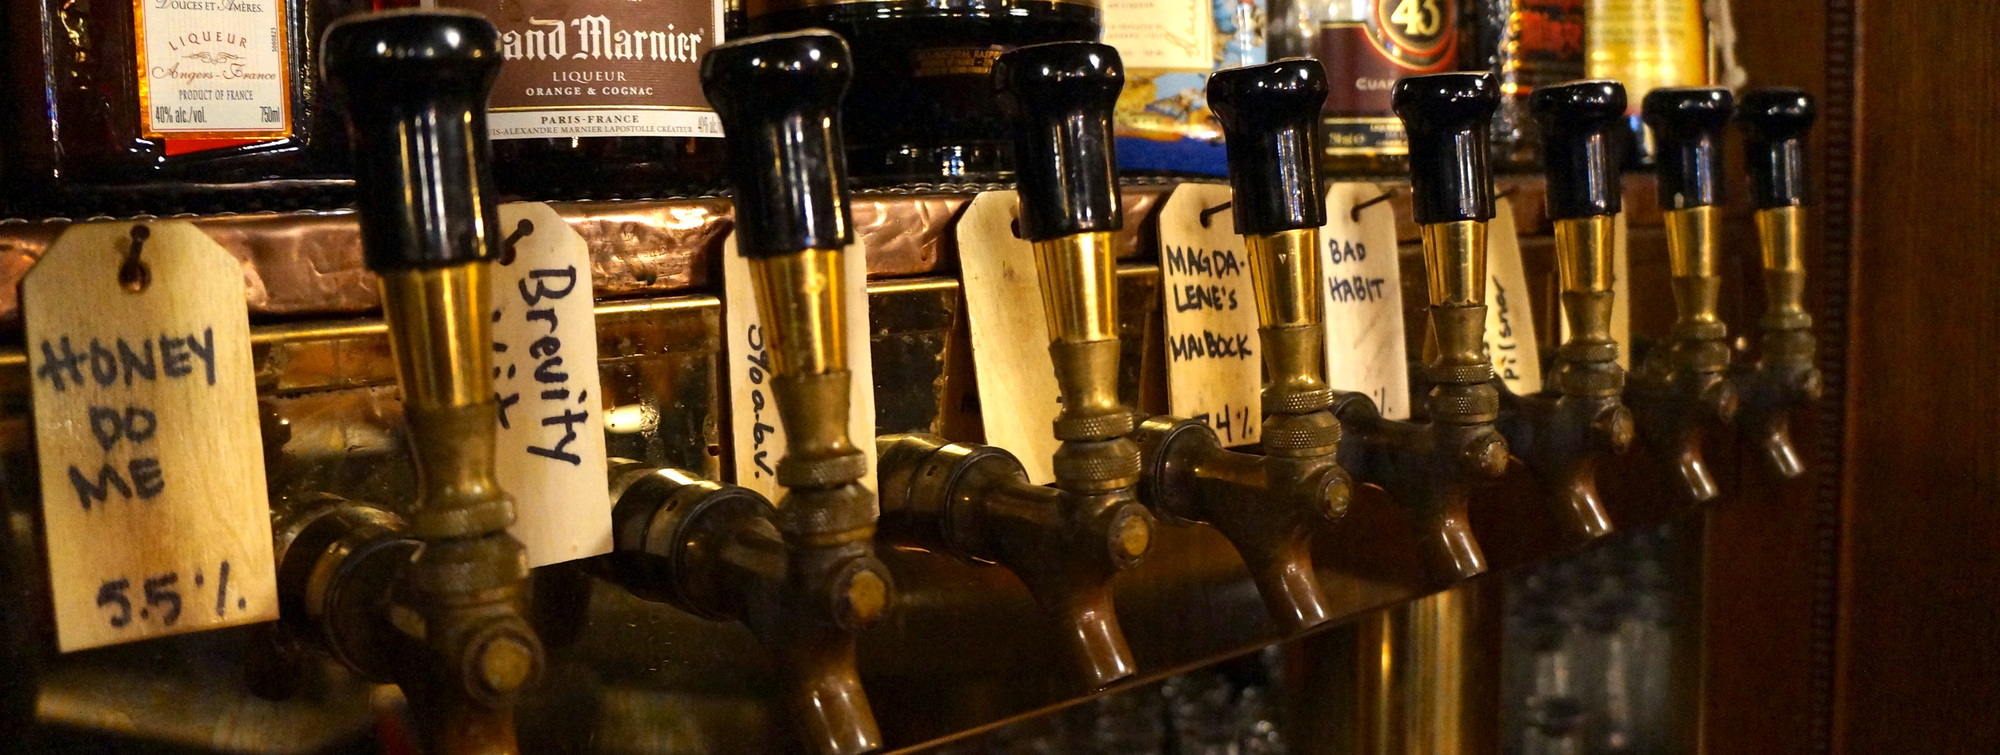 DOUCES ET AMÈRES.
LIQUEUR
Angers-France
PRODUCT OF FRANCE
40% alc./vol. 750ml
and Marnier
LIQUEUR
ORANGE & COGNAC
PARIS-FRANCE
IS-ALEXANDRE MARNIER LAPOSTOLLE CRÉATEUR
43
HONEY
DO
ME
5.5%
Brevity
Wit
5% a.b.v.
MAGDA-
LENE'S
MAIBOCK
BAD
HABIT
Pilsner